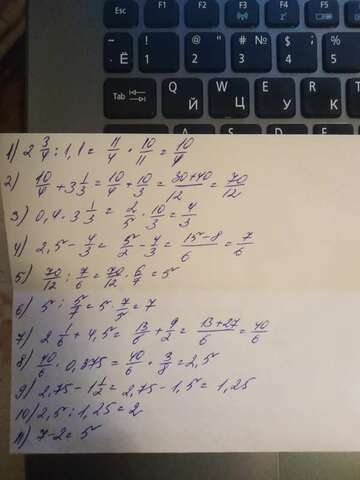 Esc F1 F2 F3 F4 F5
~ ! @ " # № $ ; %
` Ё 1 2 3 4 5
Tab Q Й W Ц E У R К
1) 2 3/4 : 1,1 = 11/4 · 10/11 = 10/4
2) 10/4 + 3 1/3 = 10/4 + 10/3 = 30+40/12 = 70/12
3) 0,4 · 3 1/3 = 2/5 · 10/3 = 4/3
4) 2,5 - 4/3 = 5/2 - 4/3 = 15-8/6 = 7/6
5) 70/12 : 7/6 = 70/12 · 6/7 = 5
6) 5 : 5/7 = 5 · 7/5 = 7
7) 2 1/6 + 4,5 = 13/6 + 9/2 = 13+27/6 = 40/6
8) 40/6 · 0,375 = 40/6 · 3/8 = 2,5
9) 2,75 - 1 1/2 = 2,75 - 1,5 = 1,25
10) 2,5 : 1,25 = 2
11) 7-2 = 5